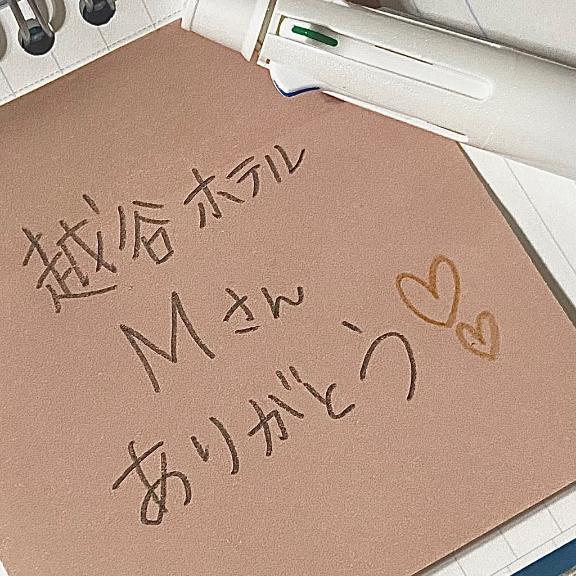 越谷ホテル
Mさん
ありがとう